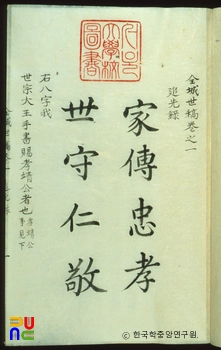 全城世稿卷之一
追先錄
家傳忠孝
世守仁敬
右八字我
世宗大王手書賜孝靖公者也
© 한국학중앙연구원.